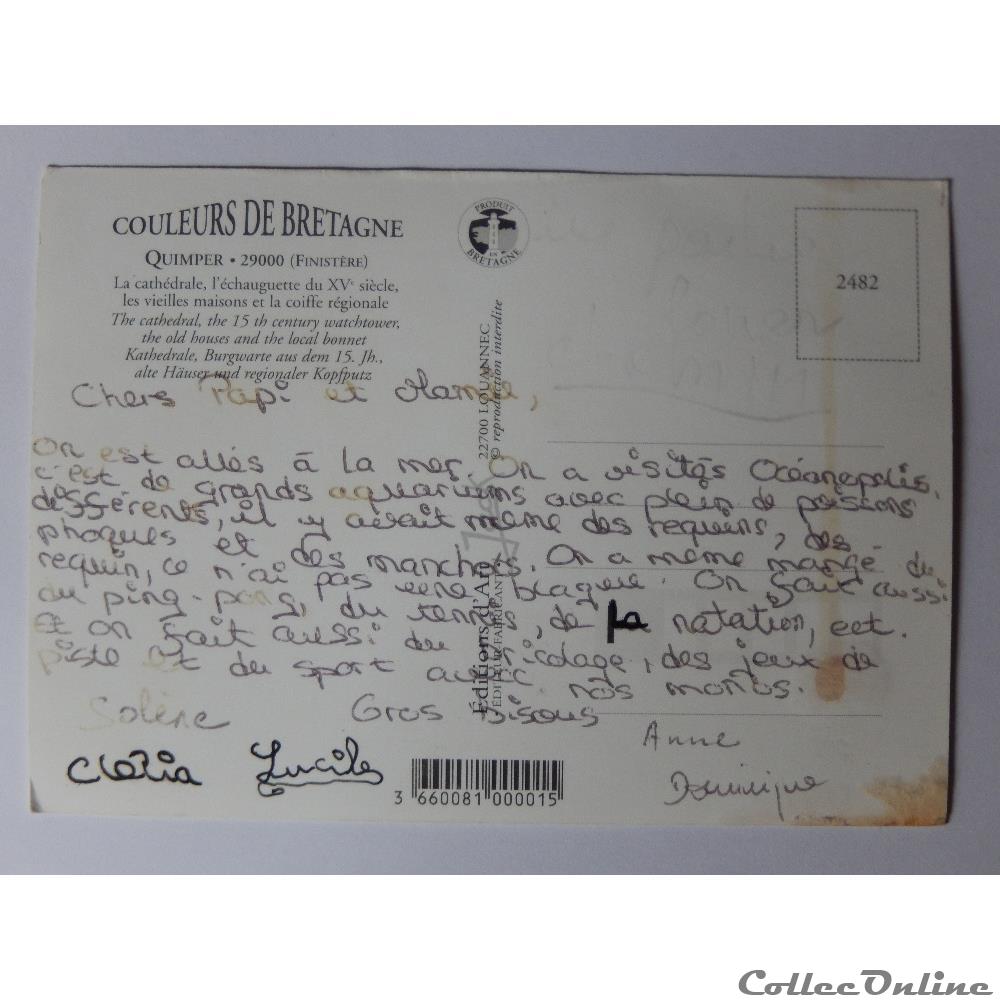 COULEURS DE BRETAGNE
QUIMPER • 29000 (FINISTÈRE)
La cathédrale, l'échauguette du XVe siècle,
les vieilles maisons et la coiffe régionale
The cathedral, the 15 th century watchtower,
the old houses and the local bonnet
Kathedrale, Burgwarte aus dem 15. Jh.,
alte Häuser und regionaler Kopfputz
PRODUIT EN BRETAGNE
2482
Éditions d'Art
ÉDITEUR-FABRICANT
22700 LOUANNEC
© reproduction interdite
Chers Papi et Mamie,
On est allés à la mer. On a visités Océanopolis.
c'est de grands aquariums avec plein de poissons
différents, il y avait même des requins, des
phoques et des manchots. On a même mangé du
requin, ce n'ai pas une blague. On fait aussi
du ping-pong, du tennis, de la natation, ect.
Et on fait aussi du bricolage, des jeux de
piste et du sport avec nos monos.
Gros bisous
Solène
Clélia
Lucile
Anne
Dominique
3 660081 000015
CollecOnline